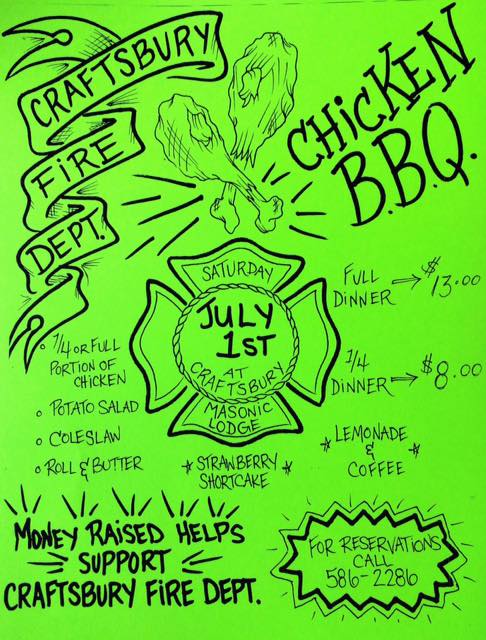 CRAFTSBURY
FiRE
DEPT.
CHiCKEN
B.B.Q.
SATURDAY
JULY
1ST
AT
CRAFTSBURY
MASONIC
LODGE
FULL
DINNER → $13.00
1/4
DINNER → $8.00
◦ 1/4 OR FULL
PORTION OF
CHICKEN
◦ POTATO SALAD
◦ COLESLAW
◦ ROLL & BUTTER
* STRAWBERRY *
SHORTCAKE
* LEMONADE *
&
COFFEE
MONEY RAISED HELPS
SUPPORT
CRAFTSBURY FiRE DEPT.
FOR RESERVATIONS
CALL
586-2286